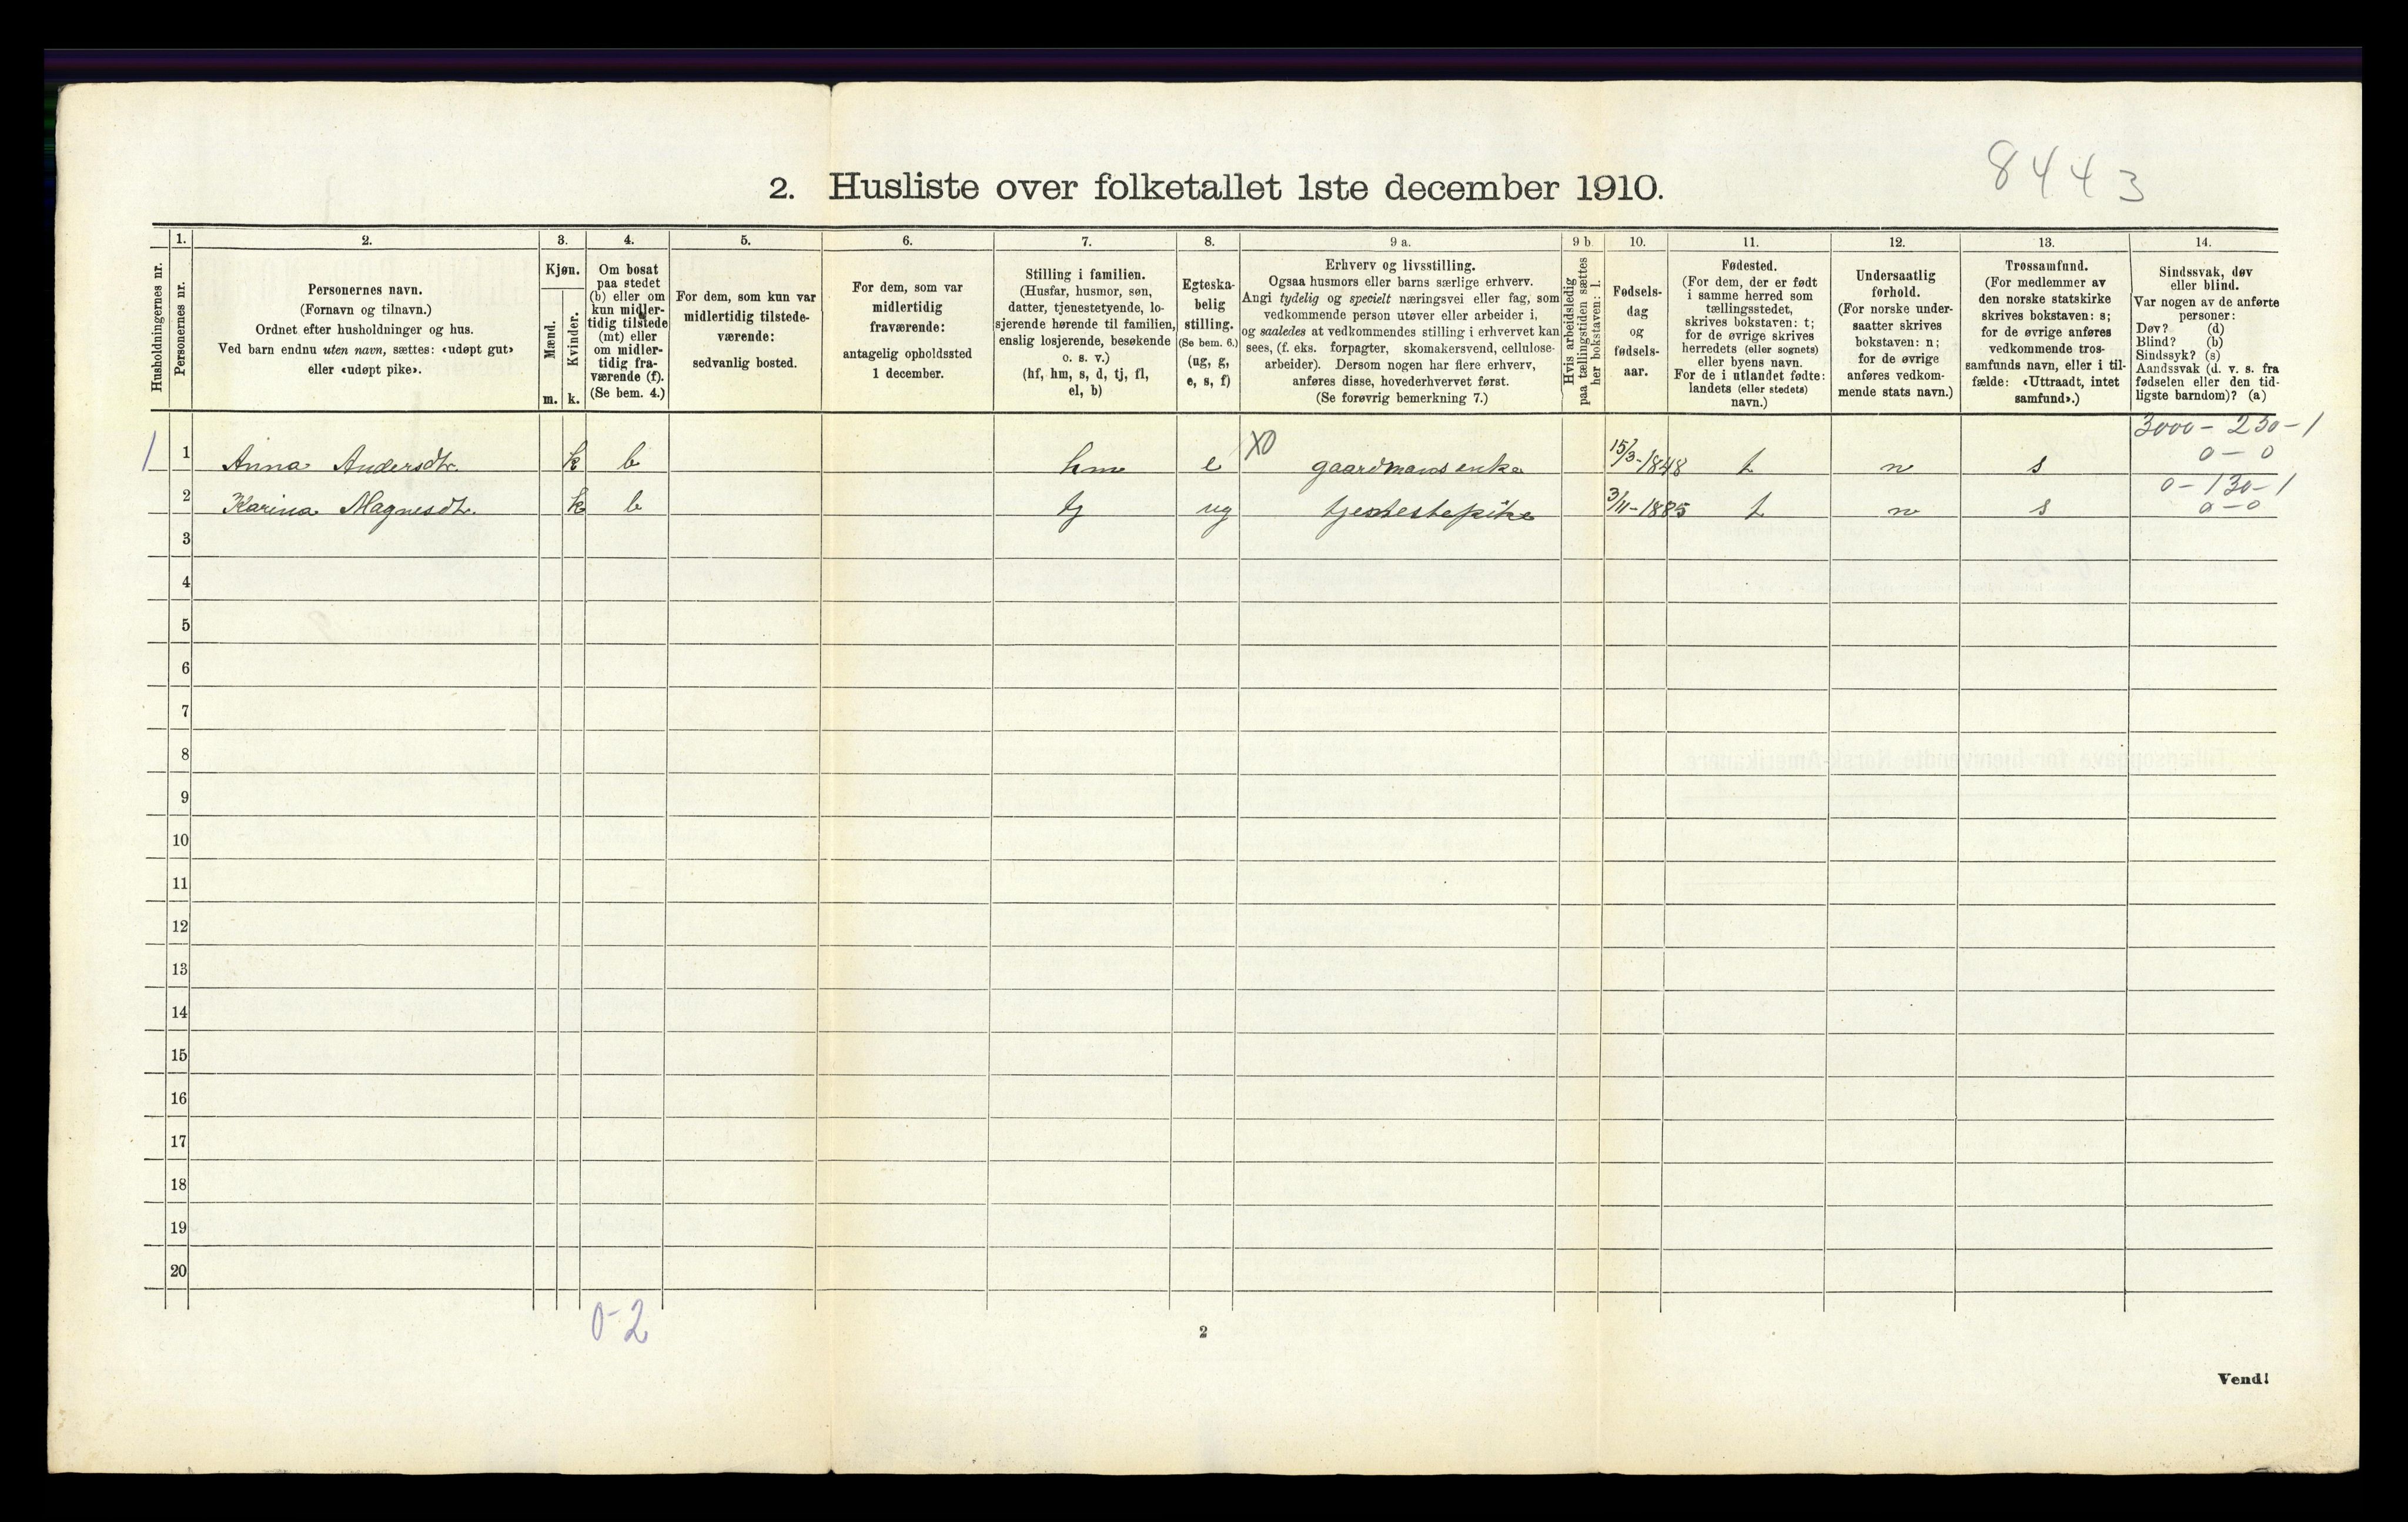 8443
2. Husliste over folketallet 1ste december 1910.
Husholdningernes nr.
1.
Personernes nr.
2.
Personernes navn.
(Fornavn og tilnavn.)
Ordnet efter husholdninger og hus.
Ved barn endnu uten navn, sættes: «udøpt gut»
eller «udøpt pike».
3.
Kjøn.
Mænd.
Kvinder.
m. k.
4.
Om bosat
paa stedet
(b) eller om
kun midler-
tidig tilstede
(mt) eller
om midler-
tidig fra-
værende (f).
(Se bem. 4.)
5.
For dem, som kun var
midlertidig tilstede-
værende:
sedvanlig bosted.
6.
For dem, som var
midlertidig
fraværende:
antagelig opholdssted
1 december.
7.
Stilling i familien.
(Husfar, husmor, søn,
datter, tjenestetyende, lo-
sjerende hørende til familien,
enslig losjerende, besøkende
o. s. v.)
(hf, hm, s, d, tj, fl,
el, b)
8.
Egteska-
belig
stilling.
(Se bem. 6.)
(ug, g,
e, s, f)
9 a.
Erhverv og livsstilling.
Ogsaa husmors eller barns særlige erhverv.
Angi tydelig og specielt næringsvei eller fag, som
vedkommende person utøver eller arbeider i,
og saaledes at vedkommendes stilling i erhvervet kan
sees, (f. eks. forpagter, skomakersvend, cellulose-
arbeider). Dersom nogen har flere erhverv,
anføres disse, hovederhvervet først.
(Se forøvrig bemerkning 7.)
9 b.
Hvis arbeidsledig
paa tællingstiden sættes
her bokstaven: l.
10.
Fødsels-
dag
og
fødsels-
aar.
11.
Fødested.
(For dem, der er født
i samme herred som
tællingsstedet,
skrives bokstaven: t;
for de øvrige skrives
herredets (eller sognets)
eller byens navn.
For de i utlandet fødte:
landets (eller stedets)
navn.)
12.
Undersaatlig
forhold.
(For norske under-
saatter skrives
bokstaven: n;
for de øvrige
anføres vedkom-
mende stats navn.)
13.
Trossamfund.
(For medlemmer av
den norske statskirke
skrives bokstaven: s;
for de øvrige anføres
vedkommende tros-
samfunds navn, eller i til-
fælde: «Uttraadt, intet
samfund».)
14.
Sindssvak, døv
eller blind.
Var nogen av de anførte
personer:
Døv? (d)
Blind? (b)
Sindssyk? (s)
Aandssvak (d. v. s. fra
fødselen eller den tid-
ligste barndom)? (a)
3000 - 230 - 1
1 1 Anna Andersdtr. k b hm e X0 gaardmans enke 15/3-1848 t n s 0 - 0
0 - 130 - 1
2 Karina Magnesdtr. k b tj ug tjenestepike 3/11-1885 t n s 0 - 0
3
4
5
6
7
8
9
10
11
12
13
14
15
16
17
18
19
20
0-2
2
Vend!